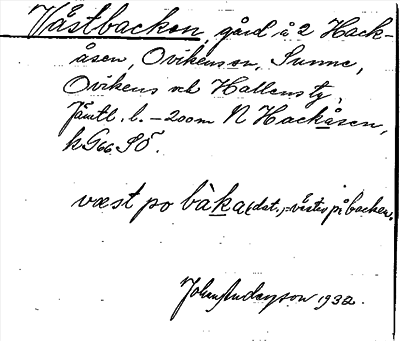 Våstbacken, gård å 2 Hack-
åsen, Ovikens sn, Sunne,
Ovikens och Hallens tg,
Jämtl. l. – 200 m N Hackåsen,
k G66 SÖ.
væst po bàka (dat.) = västra på backen.
John Anderson 1932.